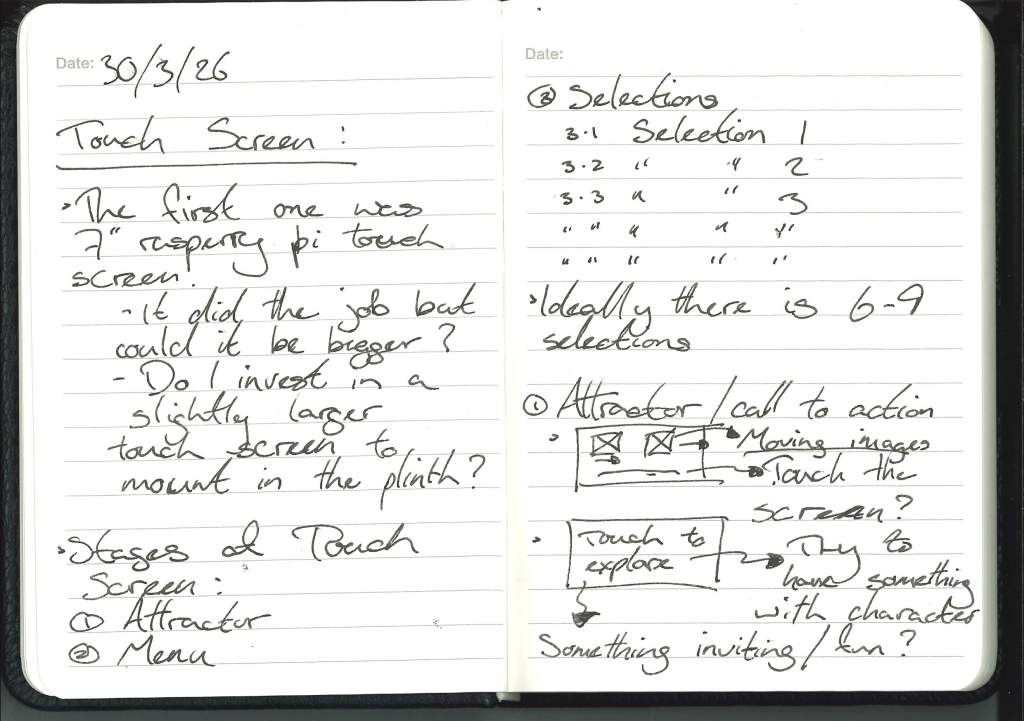 Date: 30/3/26
Touch Screen:
The first one was
7" rasperry pi touch
screen!
- It did the job but
could it be bigger?
- Do I invest in a
slightly larger
touch screen to
mount in the plinth?
Stages of Touch
Screen:
① Attractor
② Menu
Date:
③ Selections
3.1 Selection 1
3.2 " " 2
3.3 " " 3
" " " " "
" " " " "
Ideally there is 6-9
selections
① Attractor/call to action
Moving images
Touch the
screen?
Touch to
explore
Try to
have something
with character
Something inviting/fun?